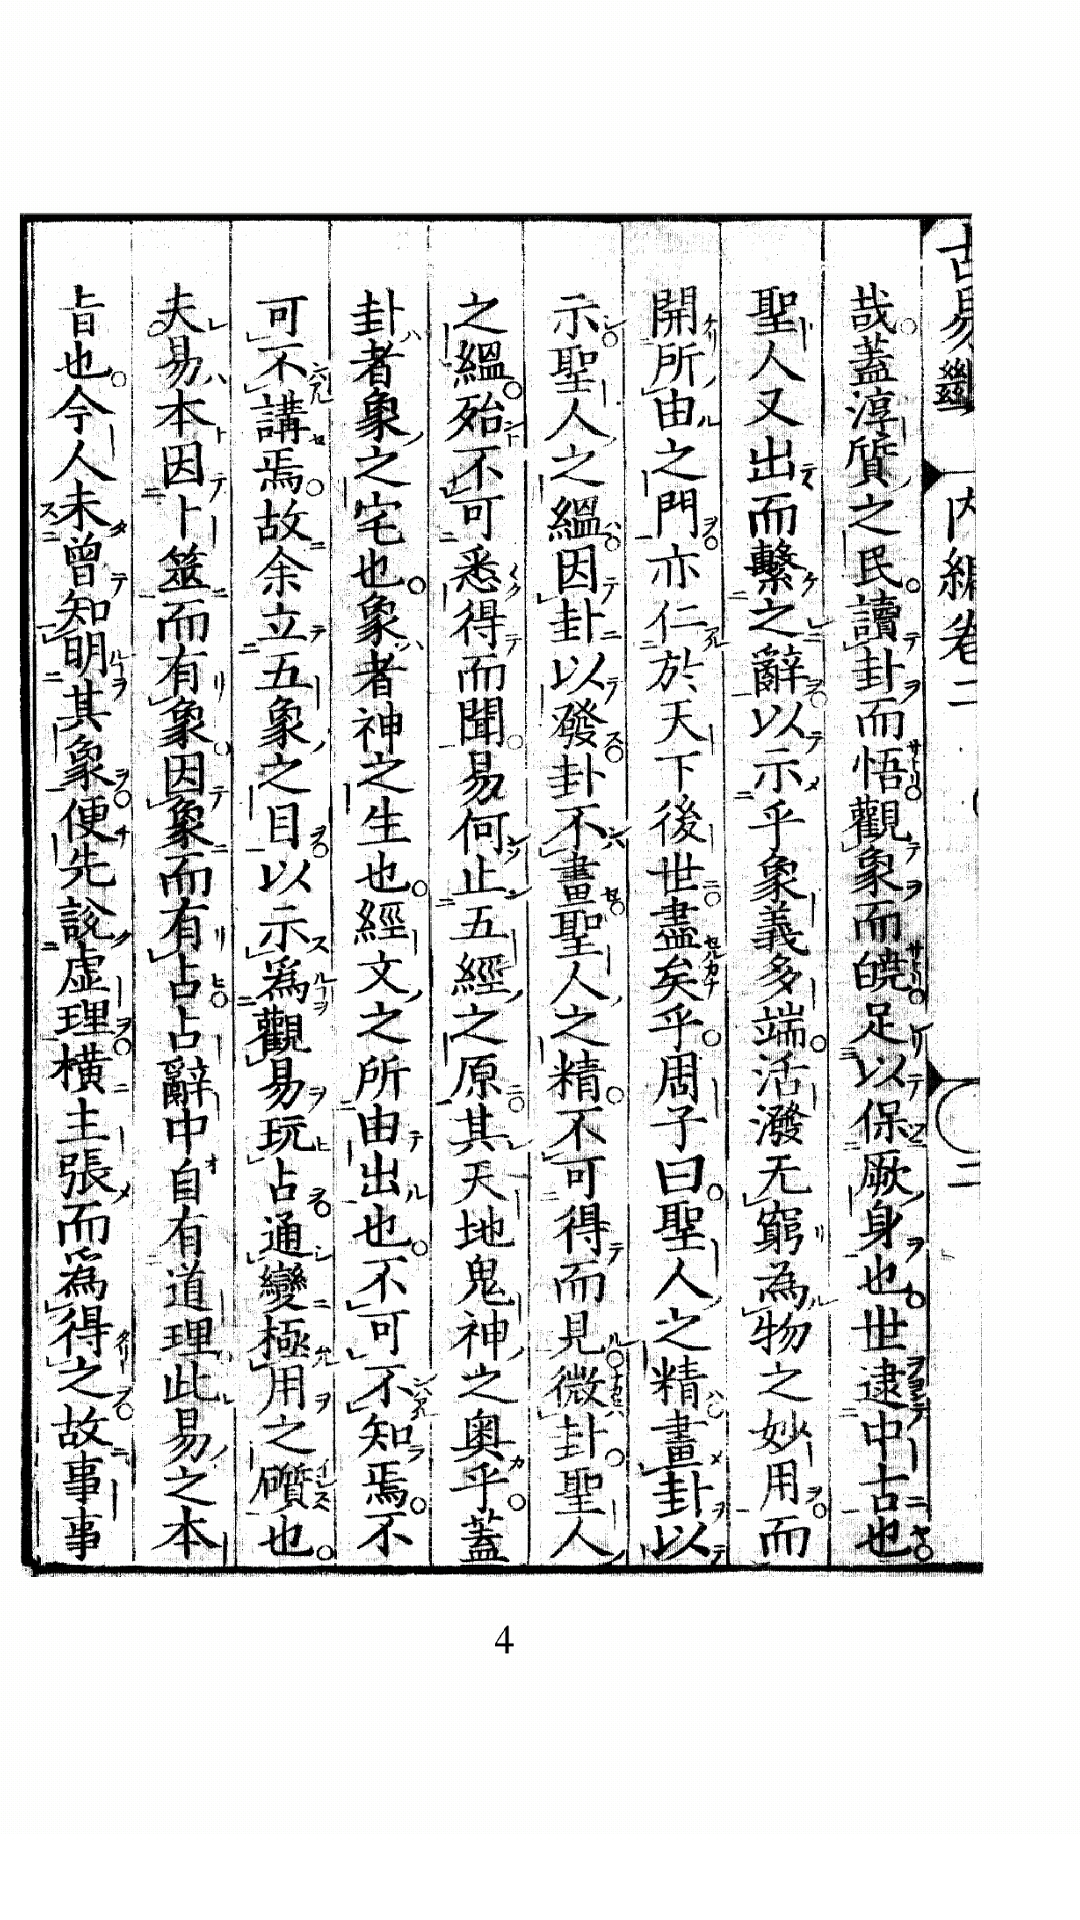 古易斷 内編卷二 二
哉。蓋淳質之民。讀卦而悟。觀象而皢。足以保厥身也。世逮中古也。
聖人又出而繫之辭。以示乎象義多端。活潑无窮為物之妙用。而
開所由之門。亦仁於天下後世。盡矣乎。周子曰。聖人之精。畫卦以
示。聖人之緼。因卦以發。卦不畫。聖人之精。不可得而見。微卦。聖人
之緼。殆不可悉得而聞。易何止五經之原。其天地鬼神之奧乎。蓋
卦者象之宅也。象者神之生也。經文之所由出也。不可不知焉。不
可不講焉。故余立五象之目。以示為觀易玩占。通變極用之礩也。
夫易本因卜筮而有象。因象而有占。占辭中自有道理。此易之本
旨也。今人未曾知明其象。便先説虛理。橫主張而為得之。故事事
4